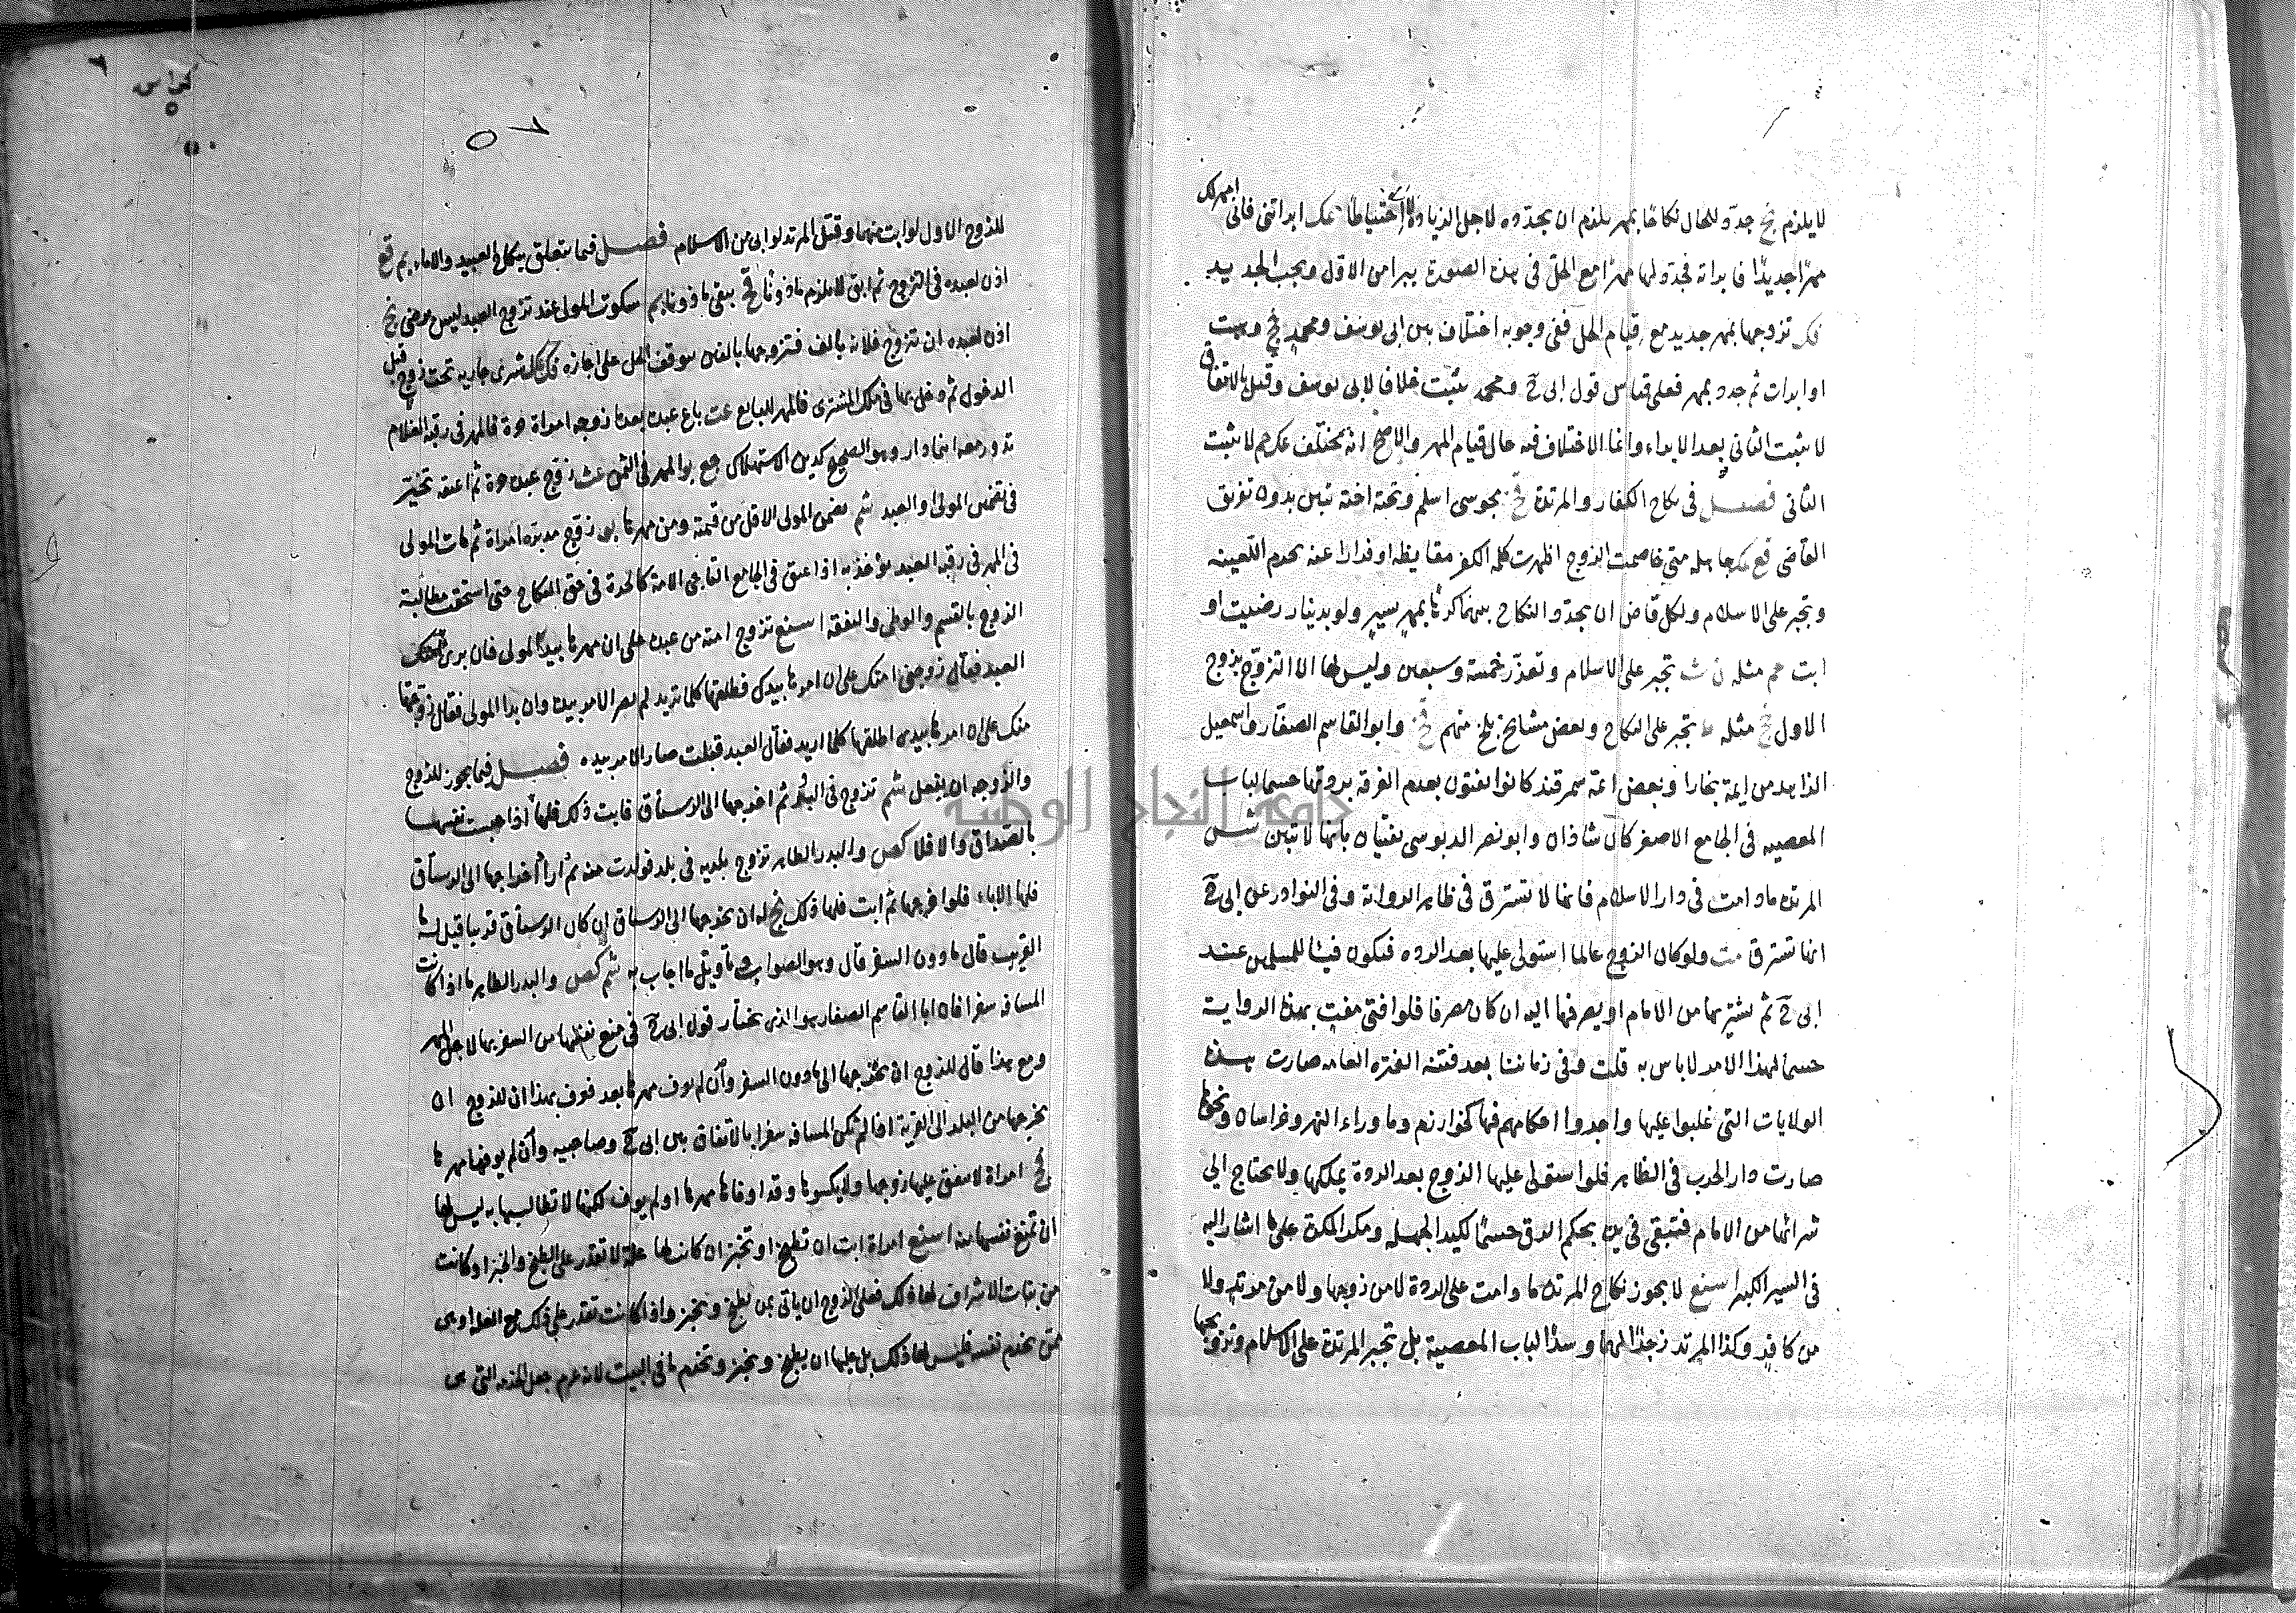 لا يلزم نج جدد للحال نكاحا بمهر يلزم ان يجدده لاجل الزيادة لا احتياطا عك ابراتنى فانى امهرك
مهرا جديدا فابراته فجدد لها مهرا مع الحل فى هذه الصورة يبرا من الاول ويجب الجديد
فك تزوجها بمهر جديد مع قيام الحل ففى وجوبه اختلاف بين ابى يوسف ومحمد نج وهبت
او ابرات ثم جدد بمهر فعلى قياس قول ابى ح ومحمد يثبت خلافا لابى يوسف وقيل بالاتفاق
لا يثبت الثانى بعد الابراء وانما الاختلاف فيه حال قيام المهر والاصح انه يختلف عك حم لا يثبت
الثانى فصل فى نكاح الكفار والمرتدة نج مجوسى اسلم وتحته اخته تبين بدون تفريق
القاضى قع عك جاهلة متى خاصمت الزوج اظهرت كلمة الكفر مغايظة او فرارا عنه يحرم اللعينة
وتجبر على الاسلام ولكل قاض ان يجدد النكاح بينهما كرها بمهر يسير ولو بدينار رضيت او
ابت حم مثله تجبر على الاسلام وتعزر خمسة وسبعين وليس لها الا التزوج بزوج
الاول نج مثله ط تجبر على النكاح وبعض مشايخ بلخ منهم نج وابو القاسم الصفار واسمعيل
الزاهد من ايمة بخارا وبعض ائمة سمرقند كانوا يفتون بعدم الفرقة بردتها حسما لباب
المعصية فى الجامع الاصغر كان شاذان وابو نصر الدبوسى يفتيان بانها لا تبين شس
المرتدة ما دامت فى دار الاسلام فانها لا تسترق فى ظاهر الرواية وفى النوادر عن ابى ح
انها تسترق ولو كان الزوج عالما استولى عليها بعد الردة فتكون فيئا للمسلمين عند
ابى ح ثم يشتريها من الامام او يصرفها اليه ان كان مصرفا فلو افتى مفت بهذه الرواية
حسما لهذا الامر لا باس به قلت وفى زماننا بعد فتنة الفترة العامة صارت هذه
الولايات التى غلبوا عليها واجروا احكامهم فيها كخوارزم وما وراء النهر وخراسان ونحوها
صارت دار الحرب فى الظاهر فلو استولى عليها الزوج بعد الردة يملكها ولا يحتاج الى
شرائها من الامام فتبقى فى يده بحكم الرق حسما لكيد الجهلة ومكر المكرة على ما اشار اليه
فى السير الكبير اسنع لا يجوز نكاح المرتدة ما دامت على الردة لا من زوجها ولا من مرتد ولا
من كافر وكذا المرتد زجرا لهما وسدا لباب المعصية بل تجبر المرتدة على الاسلام وتزوجها
كراس
للزوج الاول لو ابت منها وقتل المرتد لو ابى من الاسلام فصل فيما يتعلق بنكاح العبيد والاماء بم قع
اذن لعبده فى التزوج ثم ابق لا يلزم ماذونا نج يبقى ماذونا بم سكوت المولى عند تزوج العبد ليس برضى نج
اذن لعبده ان يتزوج فلانة بالف فتزوجها بالفين يتوقف الحل على اجازة شرى جارية تحت زوج قبل
الدخول ثم دخل بها فى ملك المشترى فالمهر للبايع عت باع عبده بعد ما زوجه امراة حرة فالمهر فى رقبة الغلام
تدور معه اينما دار وهو الصحيح كدين الاستهلاك زوج عبده حرة ثم اعتقه تخير
فى تضمين المولى او العبد شم يضمن المولى الاقل من قيمته ومن مهرها زوج مدبره امراة ثم مات المولى
فى المهر فى رقبة العبد يؤخذ به اذا عتق فى الجامع الامة كالحرة فى حق النكاح حتى استحقت مطالبة
الزوج بالقسم والوطى والنفقة اسنع تزوج امته من عبده على ان مهرها بيد المولى فان
العبد فقال زوجنى امتك على ان امرها بيدك فطلقها كلما تريد لم يصر الامر بيده وان بدا المولى فقال زوجتها
منك على ان امرها بيدى اطلقها كلما اريد فقال العبد قبلت صار الامر بيده فصل فيما يجوز للزوج
والزوجة ان يفعل شم تزوج فى البلد ثم اخرجها الى الرستاق فابت ذلك فلها اذا حبست نفسها
بالصداق والا فلا كص والبدر الطاهر تزوج بلدية فى بلد فولدت منه ثم اراد اخراجها الى الرستاق
فلها الاباء فلو اخرجها ثم ابت فلها ذلك نج له ان يخرجها الى الرستاق ان كان الرستاق قريبا قيل له ما
القريب قال ما دون السفر قال وهو الصواب وتاويل ما اجاب به شم كص والبدر الطاهر ما اذا كانت
المسافة سفرا فان ابا القاسم الصفار هو الذى يختار قول ابى ح فى منع نفسها من السفر بها لاجل المهر
ومع هذا قال للزوج ان يخرجها الى ما دون السفر وان لم يوف مهرها بعد فعرف بهذا ان للزوج ان
يخرجها من البلد الى القرية اذا لم تكن المسافة سفرا بالاتفاق بين ابى ح وصاحبيه وان لم يوفها مهرها
نج امراة لا ينفق عليها زوجها ولا يكسوها وقد اوفاها مهرها او لم يوف لكنها لا تطالبها به ليس لها
ان تمنع نفسها منه اسنع امراة ابت ان تطبخ او تخبز ان كان بها علة لا تقدر على الطبخ والخبز او كانت
من بنات الاشراف لها ذلك فعلى الزوج ان ياتى بمن يطبخ ويخبز واذا كانت تقدر على ذلك مع العلة او هى
ممن يخدم نفسه فليس لها ذلك بل عليها ان يطبخ ويخبز وتخدم ما فى البيت لانه عم جعل الخدمة التى هى